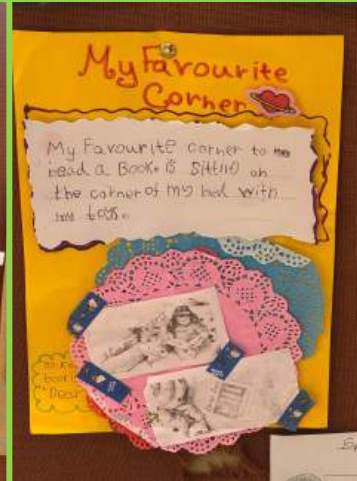 My Favourite
Corner
My Favourite corner to
read a Book. is sitting on
the corner of my bed with
my toys.
book is
Dear